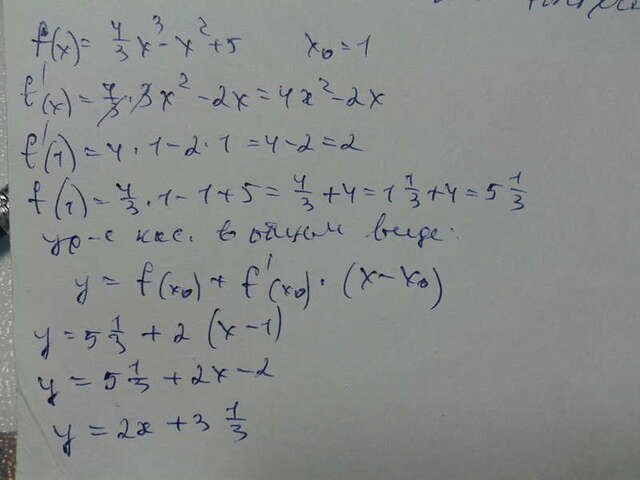 f(x) = 4/3 x³ - x² + 5 x₀ = 1
f'(x) = 4/3 · 3x² - 2x = 4x² - 2x
f'(1) = 4 · 1 - 2 · 1 = 4 - 2 = 2
f(1) = 4/3 · 1 - 1 + 5 = 4/3 + 4 = 1 1/3 + 4 = 5 1/3
ур-е кас. в общем виде:
y = f(x₀) + f'(x₀) · (x - x₀)
y = 5 1/3 + 2 (x - 1)
y = 5 1/3 + 2x - 2
y = 2x + 3 1/3